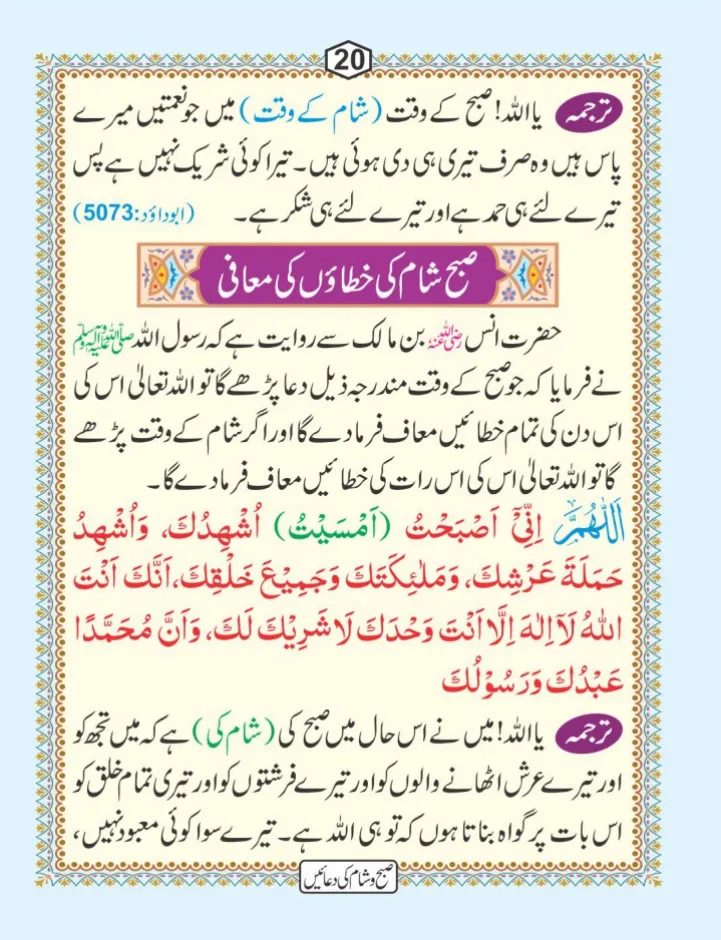 20
ترجمہ یا اللہ! صبح کے وقت (شام کے وقت) میں جو نعمتیں میرے
پاس ہیں وہ صرف تیری ہی دی ہوئی ہیں۔ تیرا کوئی شریک نہیں ہے پس
تیرے لئے ہی حمد ہے اور تیرے لئے ہی شکر ہے۔ (ابوداؤد:5073)
صبح شام کی خطاؤں کی معافی
حضرت انس رضی اللہ عنہ بن مالک سے روایت ہے کہ رسول اللہ صلی اللہ علیہ وسلم
نے فرمایا کہ جو صبح کے وقت مندرجہ ذیل دعا پڑھے گا تو اللہ تعالیٰ اس کی
اس دن کی تمام خطائیں معاف فرما دے گا اور اگر شام کے وقت پڑھے
گا تو اللہ تعالیٰ اس کی اس رات کی خطائیں معاف فرما دے گا۔
اَللّٰهُمَّ اِنِّیْٓ اَصْبَحْتُ (اَمْسَیْتُ) اُشْهِدُكَ، وَاُشْهِدُ
حَمَلَةَ عَرْشِكَ، وَمَلٰئِكَتَكَ وَجَمِیْعَ خَلْقِكَ، اَنَّكَ اَنْتَ
اللهُ لَآ اِلٰهَ اِلَّا اَنْتَ وَحْدَكَ لَا شَرِیْكَ لَكَ، وَاَنَّ مُحَمَّدًا
عَبْدُكَ وَرَسُوْلُكَ
ترجمہ یا اللہ! میں نے اس حال میں صبح کی (شام کی) ہے کہ میں تجھ کو
اور تیرے عرش اٹھانے والوں کو اور تیرے فرشتوں کو اور تیری تمام خلق کو
اس بات پر گواہ بناتا ہوں کہ تو ہی اللہ ہے۔ تیرے سوا کوئی معبود نہیں،
صبح و شام کی دعائیں